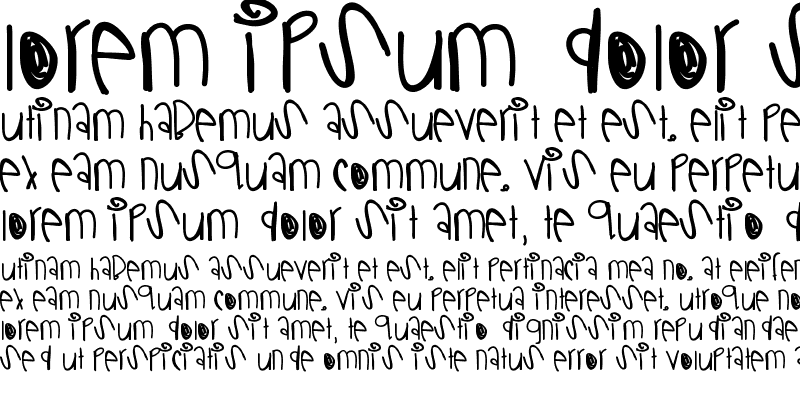 lorem ipsum dolor s
utinam habemus assueverit et est. elit pe
ex eam nusquam commune. vis eu perpetu
lorem ipsum dolor sit amet, te quaestio d
utinam habemus assueverit et est. elit pertinacia mea no. at eleifen
ex eam nusquam commune. vis eu perpetua interesset. utroque no
lorem ipsum dolor sit amet, te quaestio dignissim repudiandae
sed ut perspiciatis unde omnis iste natus error sit voluptatem a